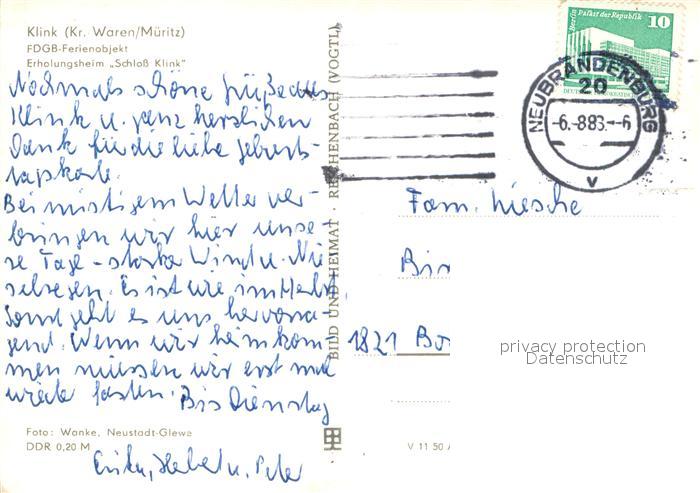 Klink (Kr. Waren/Müritz)
FDGB-Ferienobjekt
Erholungsheim „Schloß Klink"
Nochmals schöne Grüße aus
Klink u. ganz herzlichen
Dank für die liebe Geburts-
tagskarte.
Bei mistigem Wetter ver-
bringen wir hier unse-
re Tage - starker Wind u. Nie
selregen. Es ist wie im Herbst,
sonst geht es uns hervorra-
gend. Wenn wir heimkom-
men müssen wir erst mal
wieder fasten. Bis Dienstag
Foto: Wanke, Neustadt-Glewe
DDR 0,20 M
BILD UND HEIMAT REICHENBACH (VOGTL)
V 11 50
Berlin Palast der Republik
10
NEUBRANDENBURG
20
-6.-8.83.-6
v
Fam.
1821
privacy protection
Datenschutz